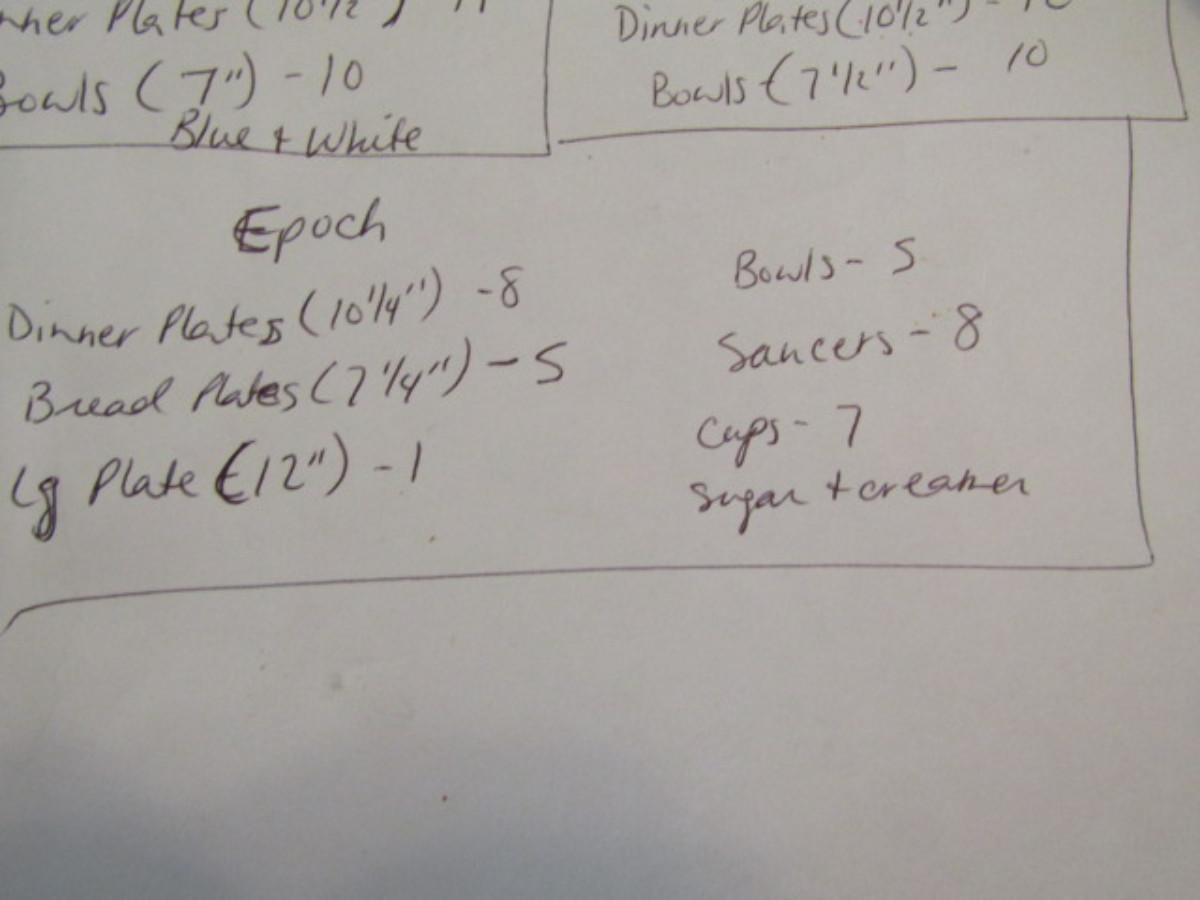 Plates (10 1/2")
Bowls (7") - 10
Blue + White
Dinner Plates (10 1/2") - 10
Bowls (7 1/2") - 10
Epoch
Dinner Plates (10 1/4") - 8
Bread Plates (7 1/4") - 5
Lg Plate (12") - 1
Bowls - 5
Saucers - 8
Cups - 7
Sugar + creamer